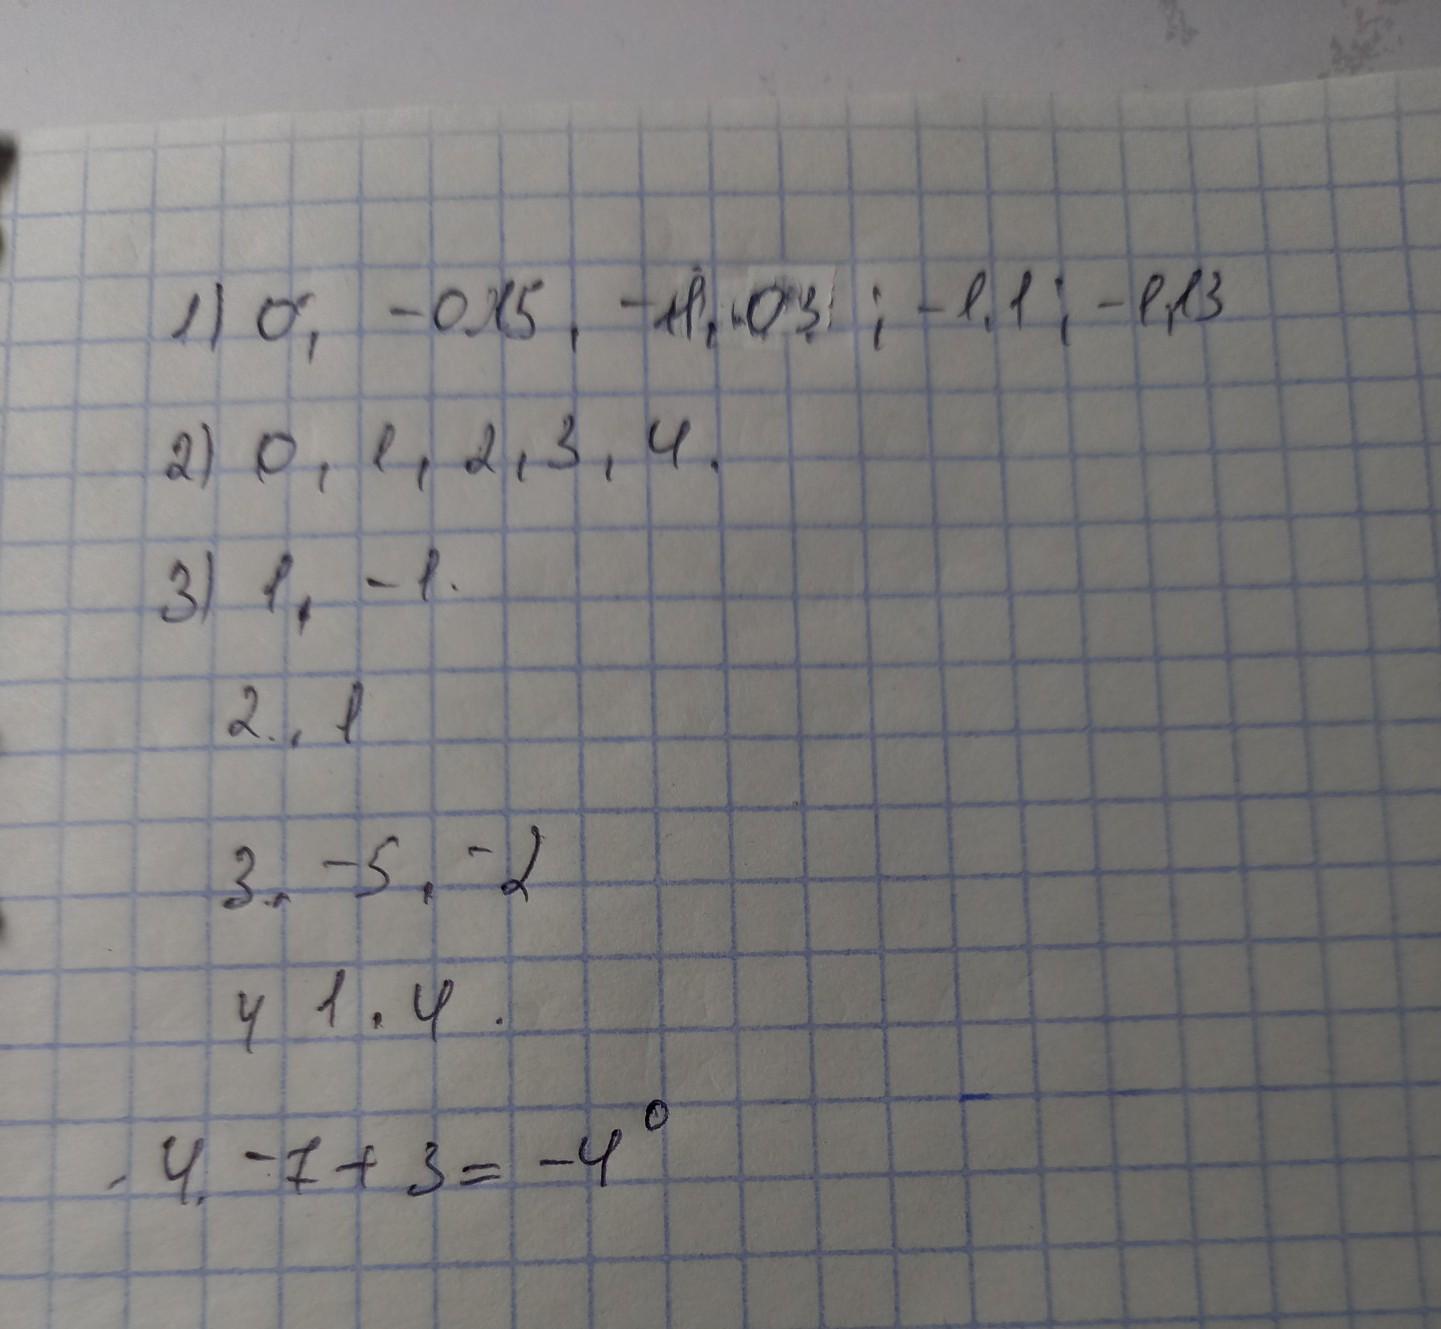 1) 0, -0,15, -1,03; -1,1; -1,13
2) 0, 1, 2, 3, 4.
3) 1, -1.
2., 1
3., -5, -2
4 1, 4.
4. -7 + 3 = -4°